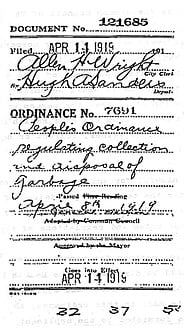 DOCUMENT NO. 121685
Filed APR 11 1919 191
Allen H Wright
City Clerk
By Hugh A Sanders
Deputy
ORDINANCE NO. 7691
People's Ordinance
regulating collection
and disposal of
garbage
Passed First Reading
April 8th 1919
Adopted by Common Council
Approved by the Mayor
Goes into Effect
APR 11 1919
32 37